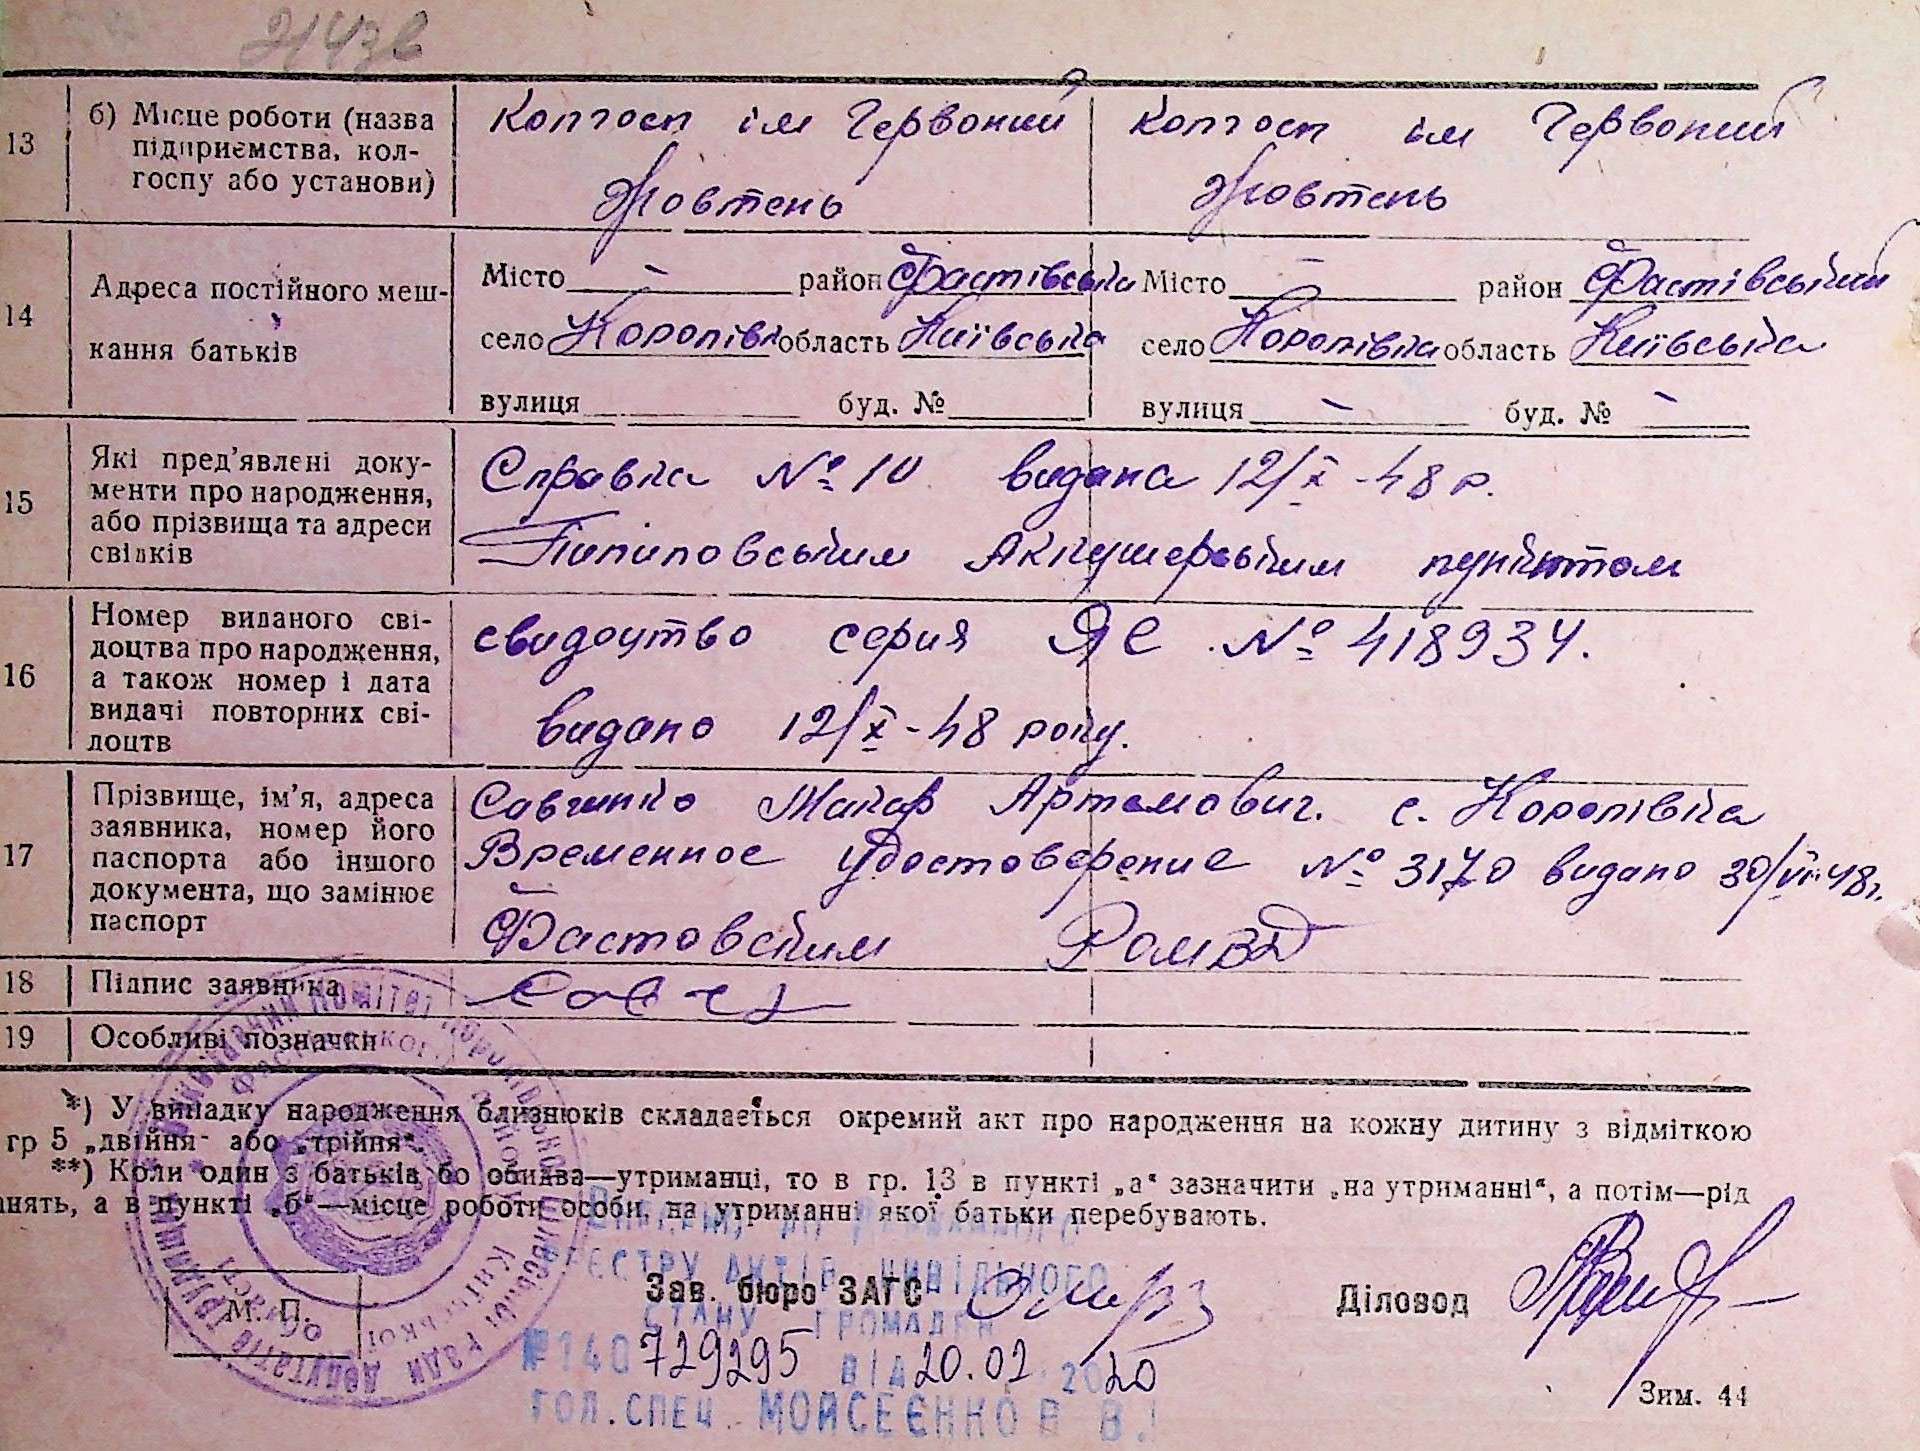 13
б) Місце роботи (назва
підприємства, кол-
госпу або установи)
Колгосп ім Червоний
Жовтень
Колгосп ім Червоний
Жовтень
14
Адреса постійного меш-
кання батьків
Місто район Фастівський
село Королівка область Київська
вулиця буд. №
Місто район Фастівський
село Королівка область Київська
вулиця буд. №
15
Які пред'явлені доку-
менти про народження,
або прізвища та адреси
свідків
Справка № 10 видана 12/X-48 р.
Акушерським пунктом
16
Номер виданого сві-
доцтва про народження,
а також номер і дата
видачі повторних сві-
доцтв
свидоцтво серия ЯС № 418934.
видано 12/X-48 року.
17
Прізвище, ім'я, адреса
заявника, номер його
паспорта або іншого
документа, що замінює
паспорт
Савченко Макар Артемович. с. Королівка
Временное удостоверение № 3170 видано 30/VI-48г.
Фастовским
18
Підпис заявника
19
Особливі позначки
*) У випадку народження близнюків складається окремий акт про народження на кожну дитину з відміткою
гр 5 „двійня" або „трійня".
**) Коли один з батьків бо обидва—утриманці, то в гр. 13 в пункті „а" зазначити „на утриманні", а потім—рід
анять, а в пункті „б"—місце роботи особи, на утриманні якої батьки перебувають.
РЕЄСТРУ АКТІВ ЦИВІЛЬНОГО
Зав. бюро ЗАГС
Діловод
М. П.
СТАНУ ГРОМАДЯН
№140 729295 ВІД 20.02.2020
ГОЛ.СПЕЦ. МОЙСЕЄНКОВ В.
Зим. 44